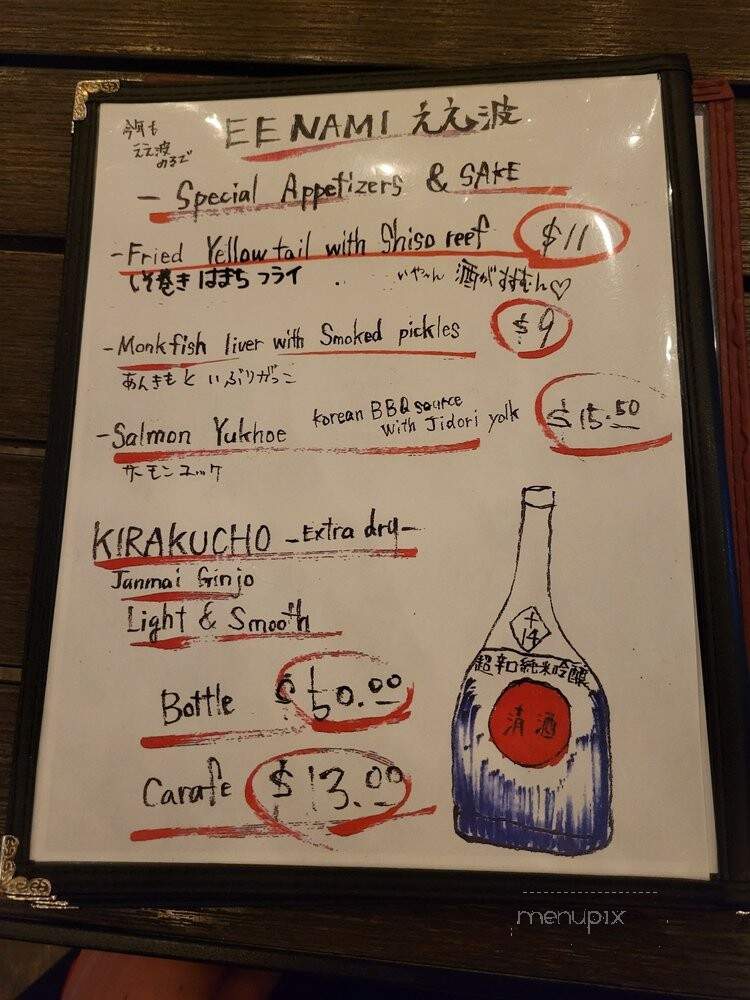 今何も
ええ波
のるで
EENAMI ええ波
- Special Appetizers & SAKE
- Fried Yellowtail with Shiso reef $11
しそ巻き はまち フライ いやん 酒がすすむん♡
- Monkfish liver with Smoked pickles $9
あんきもと いぶりがっこ
- Salmon Yukhoe Korean BBQ source with Jidori yolk $15.50
サーモンユッケ
KIRAKUCHO -Extra dry-
Junmai Ginjo
Light & Smooth
Bottle
Carafe $13.00
+14
超辛口純米吟醸
清酒
menupix